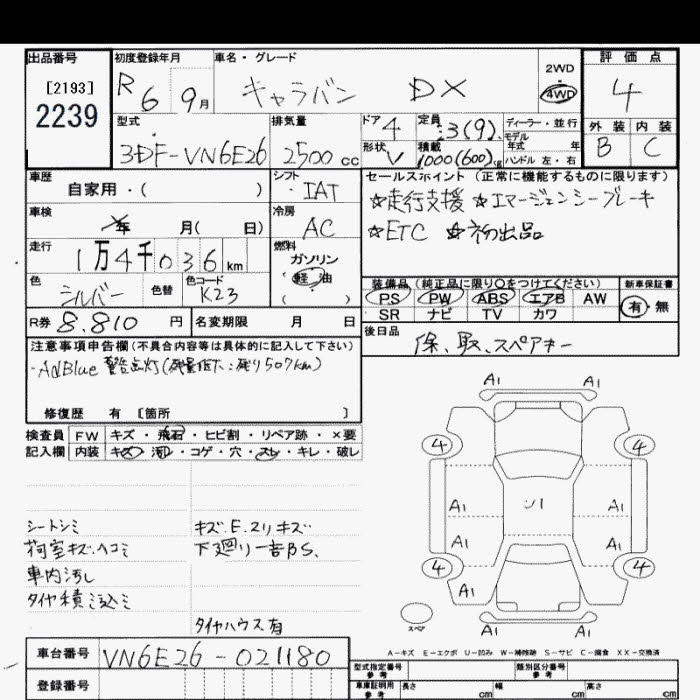 出品番号
[2193]
2239
初度登録年月
R6 9月
車名・グレード
キャラバン DX
2WD・4WD
評価点
4
型式
3DF-VN6E26
排気量
2500 cc
ドア 4
形状 V
定員 3(9)
積載 1000(600)kg
ディーラー・並行
モデル年式 年式
ハンドル 左・右
外装 内装
B C
車歴
自家用・( )
シフト
IAT
セールスポイント (正常に機能するものに限ります)
☆走行支援 ☆エマージェンシーブレーキ
☆ETC ☆初出品
車検
年 月( 日)
冷房
AC
走行
1万4千036km
燃料
ガソリン
軽油
( )
色
シルバー
色替
色コード
K23
装備品 (純正品に限り○をつけてください)
PS PW ABS エアB AW
SR ナビ TV カワ
新車保証書
有・無
R券 8.810 円
名変期限 月 日
後日品
保、取、スペアキー
注意事項申告欄(不具合内容等は具体的に記入して下さい)
・AdBlue 警告点灯(残量低下:残り507km)
修復歴 有 [箇所 ]
検査員 FW キズ・飛石・ヒビ割・リペア跡・×要
記入欄 内装 キズ・汚レ・コゲ・穴・スレ・キレ・破レ
シートシミ
荷室キズ、ヘコミ
車内汚レ
タイヤ積ミ込ミ
キズ、E、スリキズ
下廻リ一部S、
タイヤハウス有
A1 A1
4 4
ソ1
A1 A1
A1 A1
4 4
A1
A1 A1
スペア
A-キズ E-エクボ U-凹み W-補修跡 S-サビ C-腐食 XX-交換済
車台番号 VN6E26-021180
登録番号
型式指定番号 参考
類別区分番号 参考
車庫証明用 参考
長さ cm
幅 cm
高さ cm